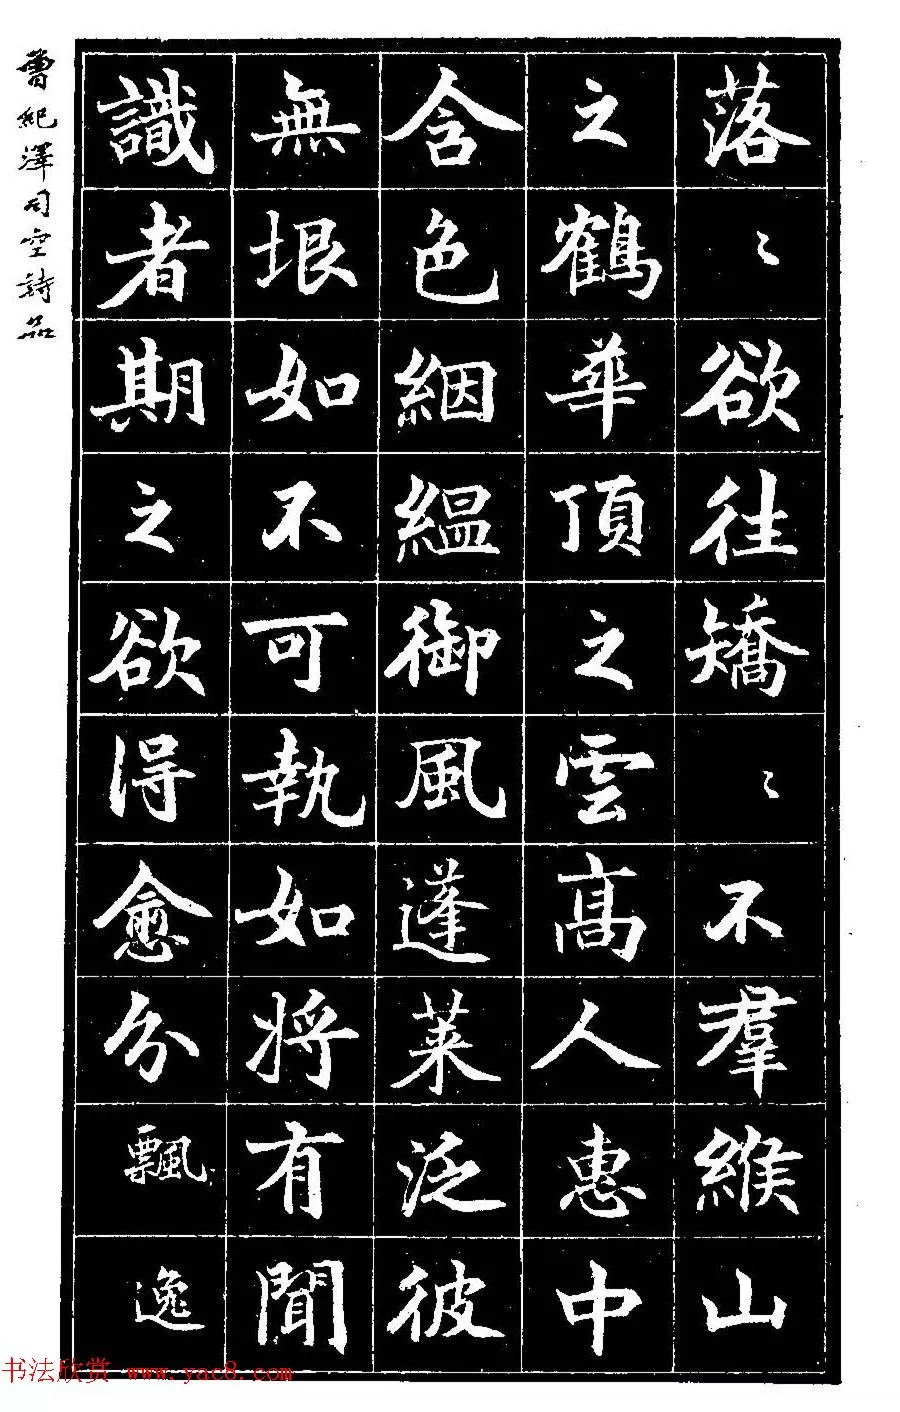 落〻欲往矯〻不羣緱山
之鶴華頂之雲高人惠中
含色絪緼御風蓬萊泛彼
無垠如不可執如將有聞
識者期之欲得愈分飄逸
曾紀澤司空詩品
书法欣赏 www.yac8.com